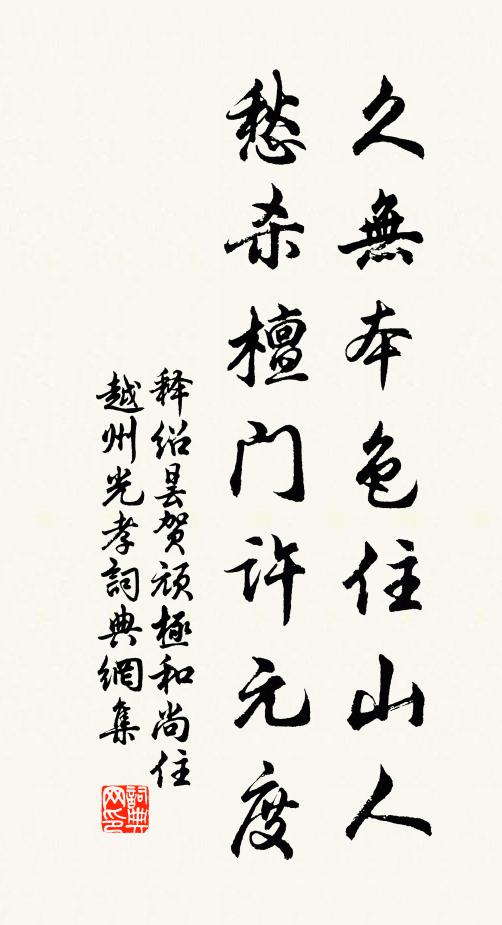 久無本色住山人
愁杀檀门许元度
释绍昙贺顽極和尚住
越州光孝詞典網集
詞典网印